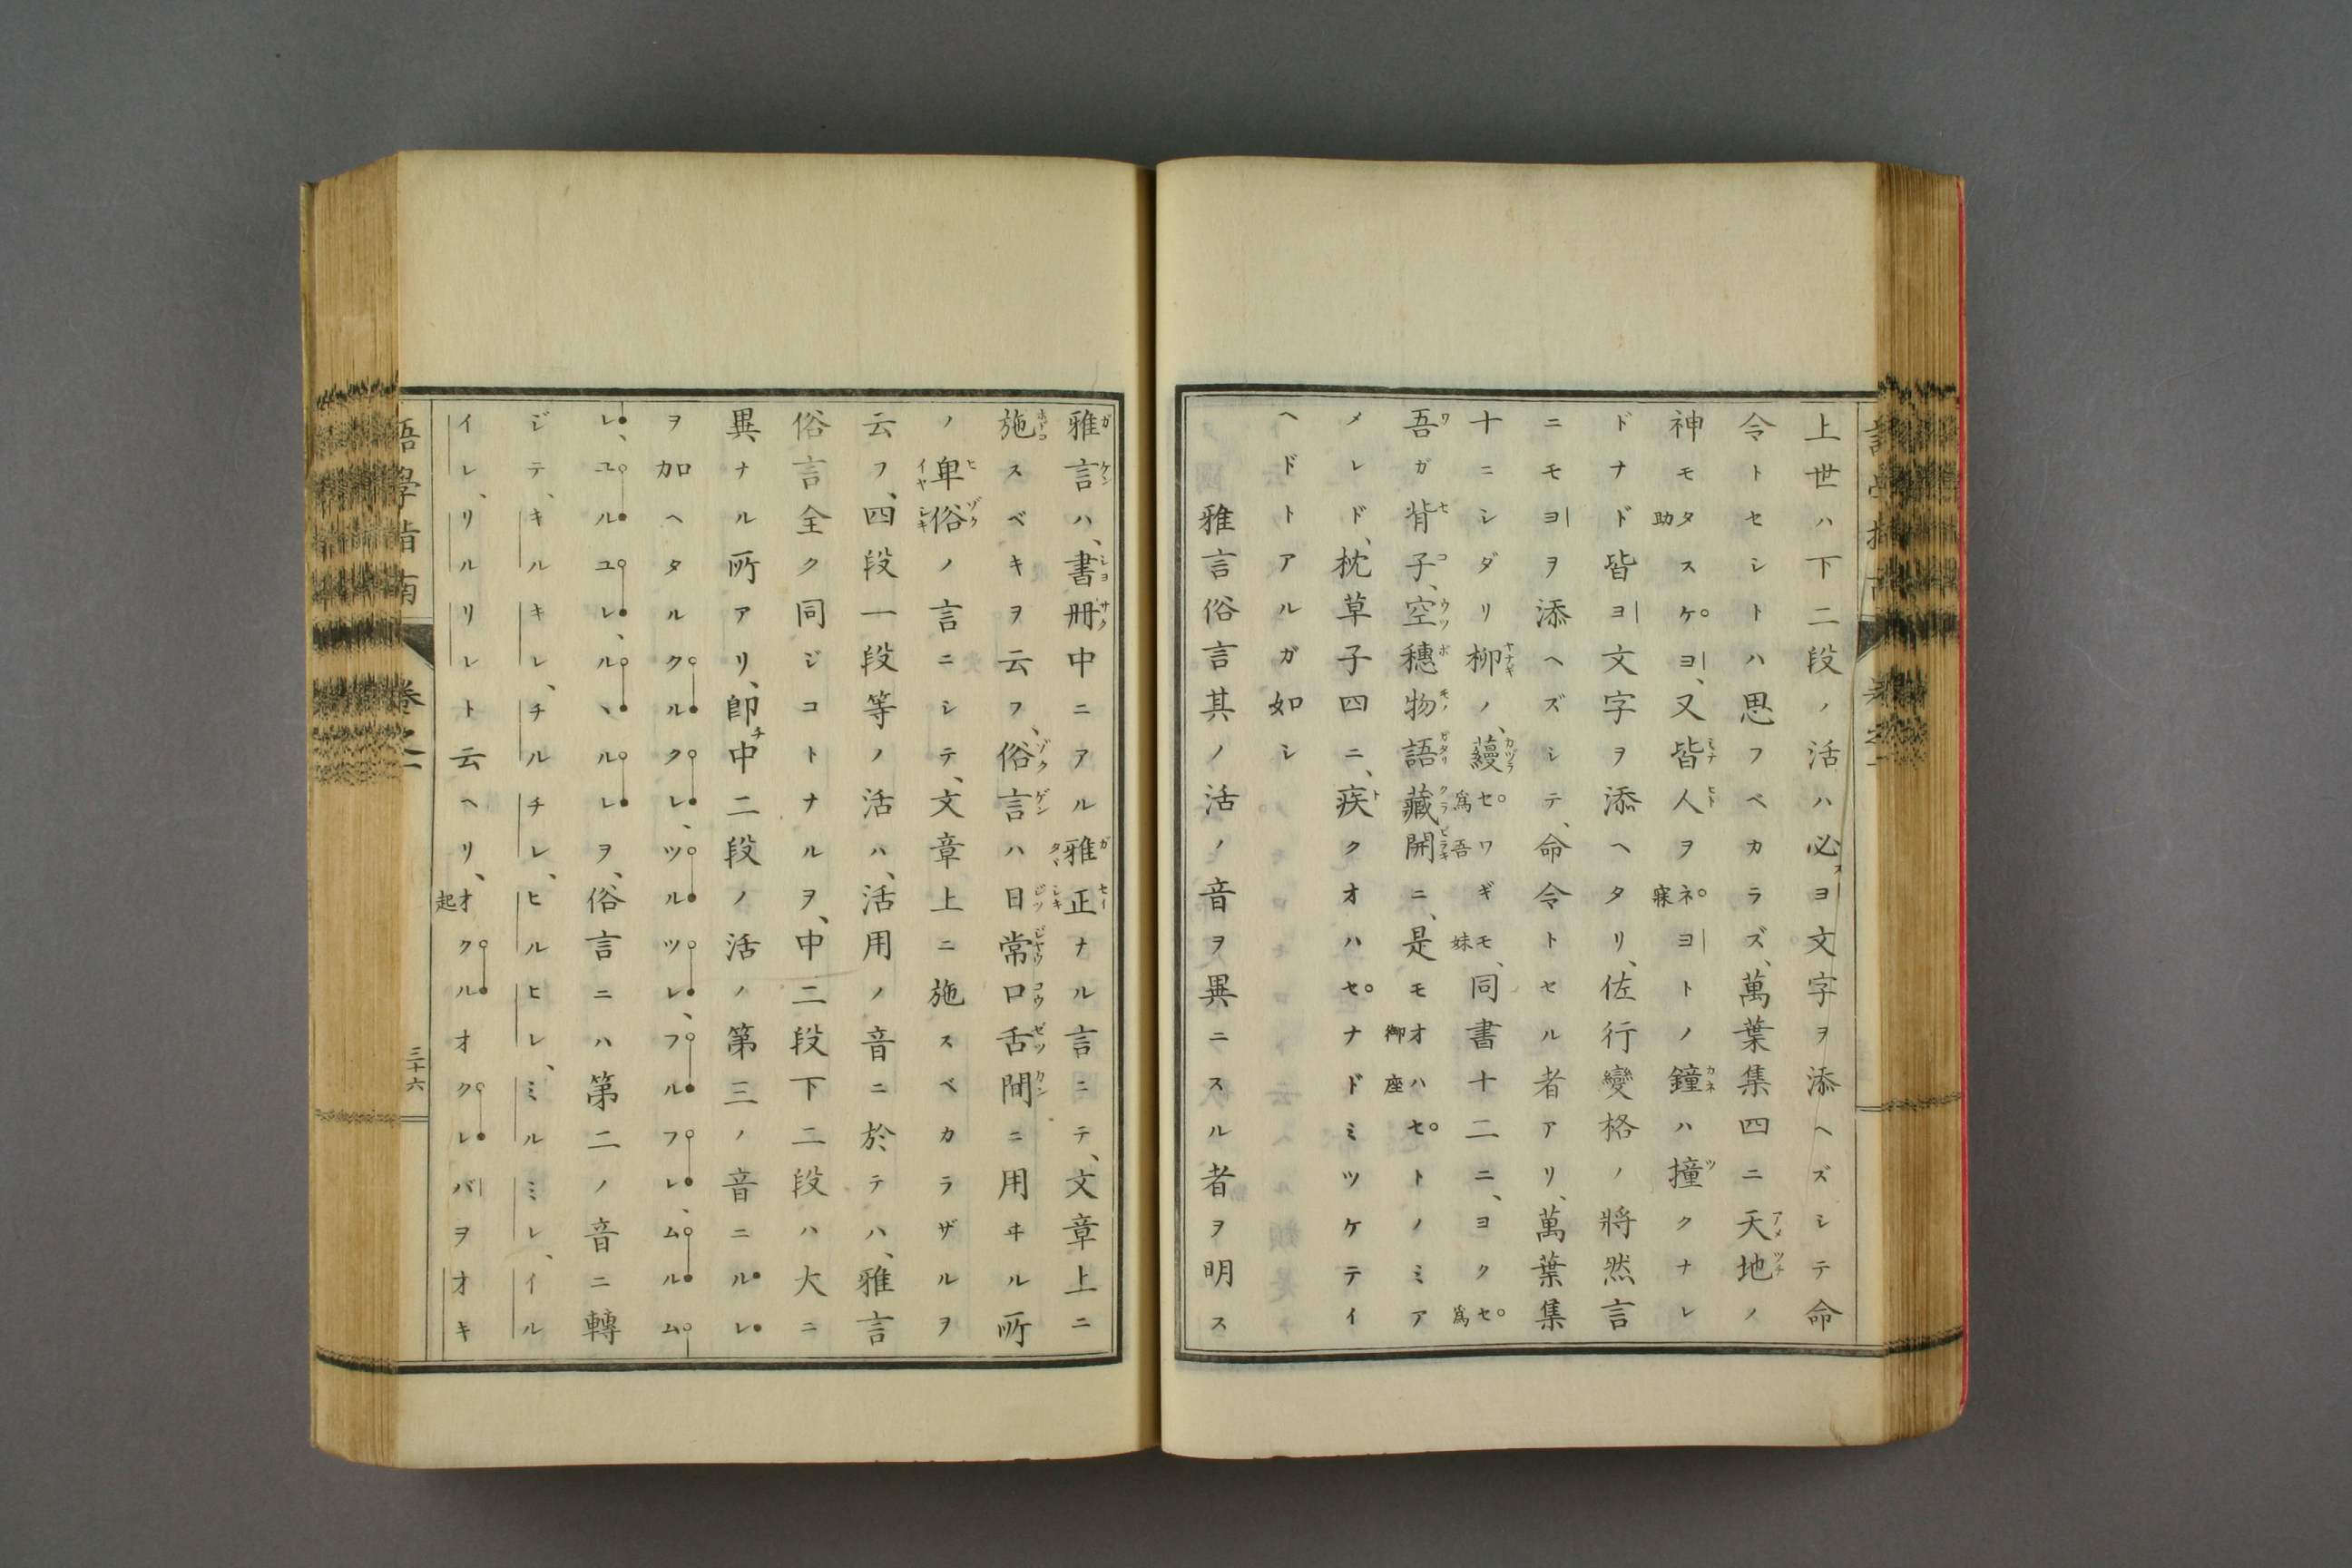 上世ハ下二段ノ活ハ必スヨ文字ヲ添ヘズシテ命
令トセシトハ思フベカラズ、萬葉集四ニ天地ノ
神モタスケヨ、又皆人ヲネヨトノ鐘ハ撞クナレ
ドナド皆ヨ文字ヲ添ヘタリ、佐行變格ノ將然言
ニモヨヲ添ヘズシテ、命令トセル者アリ、萬葉集
十ニシダリ柳ノ、蘰セワギモ、同書十二ニ、ヨクセ
吾ガ背子、空穗物語藏開ニ、是モオハセトノミア
メレド、枕草子四ニ、疾クオハセナドミツケテイ
ヘドトアルガ如シ
雅言俗言其ノ活ノ音ヲ異ニスル者ヲ明ス
雅言ハ、書册中ニアル雅正ナル言ニテ、文章上ニ
施スベキヲ云フ、俗言ハ日常口舌間ニ用ヰル所
ノ卑俗ノ言ニシテ、文章上ニ施スベカラザルヲ
云フ、四段一段等ノ活ハ、活用ノ音ニ於テハ、雅言
俗言全ク同ジコトナルヲ、中二段下二段ハ大ニ
異ナル所アリ、卽チ中二段ノ活ノ第三ノ音ニルレ
ヲ加ヘタルクルクレ、ツルツレ、フルフレ、ムルム
レ、ユルユレ、ルヽルレヲ、俗言ニハ第二ノ音ニ轉
ジテ、キルキレ、チルチレ、ヒルヒレ、ミルミレ、イル
イレ、リルリレト云ヘリ、オクルオクレバヲオキ
語學指南
卷之二
三十六